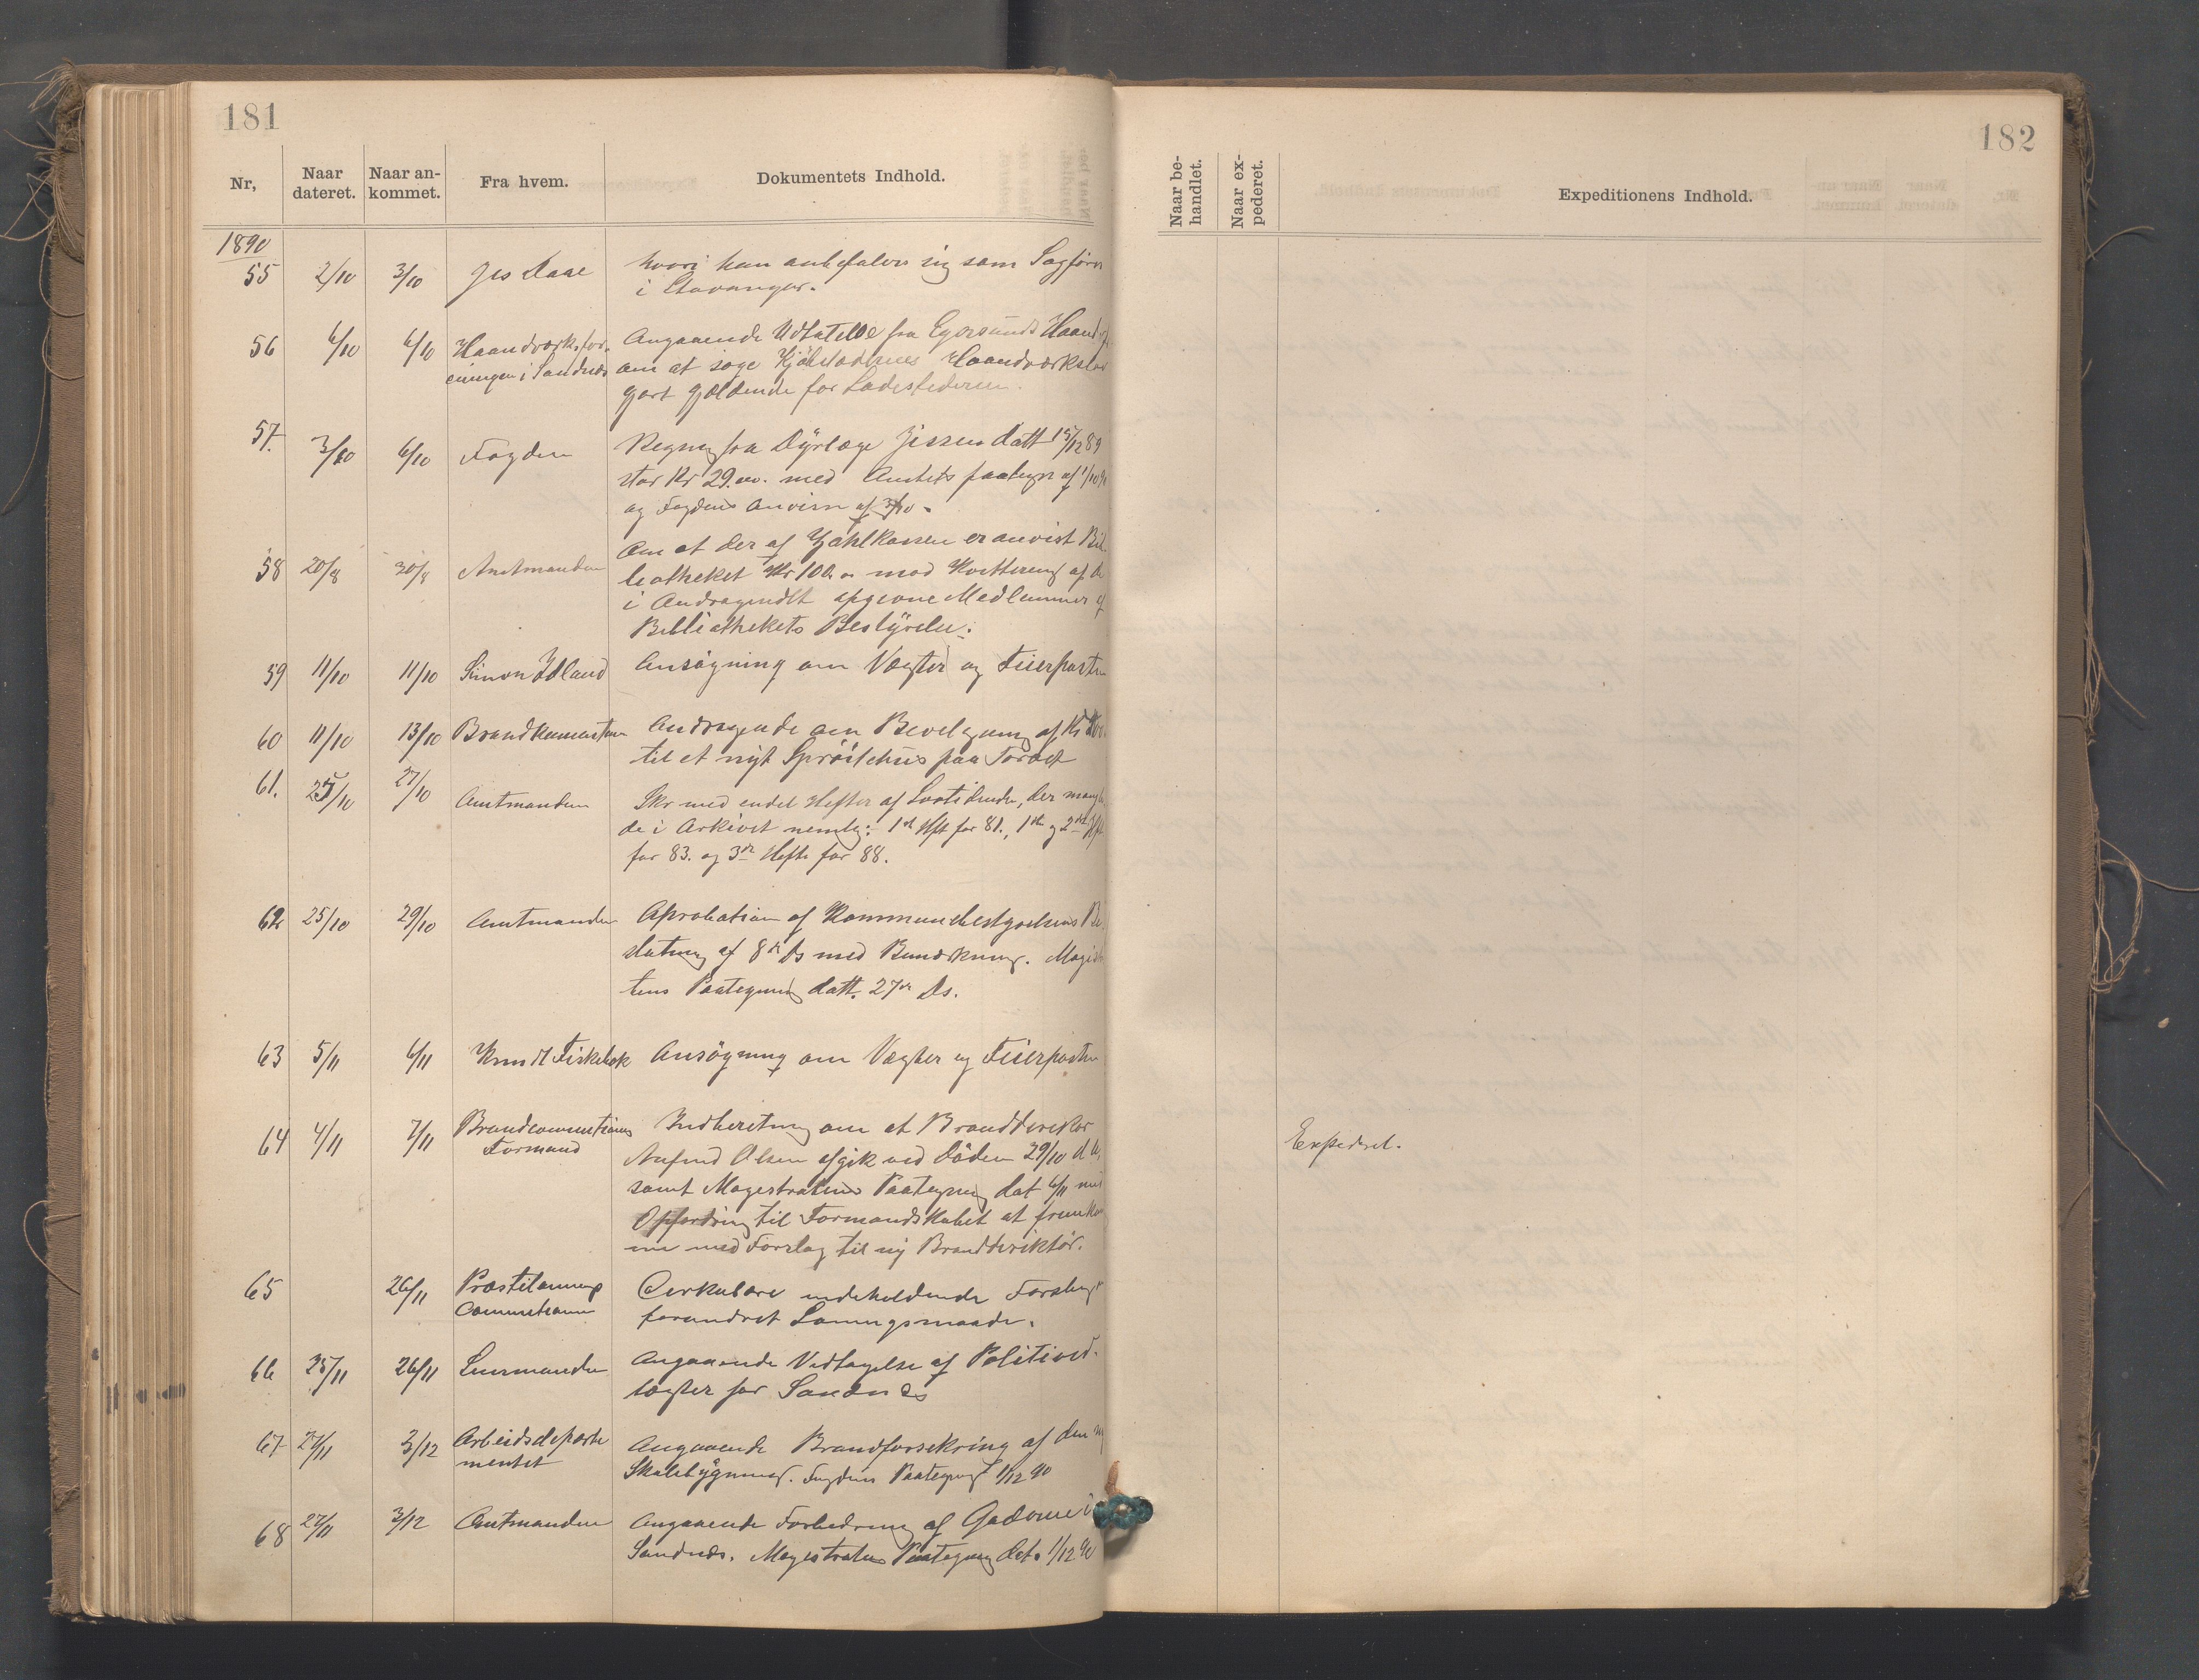 181
Nr,
Naar dateret.
Naar an-kommet.
Fra hvem.
Dokumentets Indhold.
1890
55 2/10 3/10 Jes Daae hvori han anbefaler sig som Sagfører
i Stavanger.
56 6/10 6/10 Haandværksfor- Angaaende Udtalelse fra Egersunds Haandv
eningen i Sandnæs om at søge Kjøbstædernes Haandværkslov
gjort gjældende for Ladestederne.
57. 3/10 6/10 Fogden Regning fra Dyrlæge Jessen datt 15/12 89
stor Kr 29.00. med Amtets paategn af 1/10 90
og Fogdens Anvisn af 3/10.
58 20/8 30/8 Amtmanden Om at der af Zahlkassen er anvist Bib
liotheket Kr 100.00 mod Kvittering af de
i Andragendet opgivne Medlemmer af
Bibliothekets Bestyrelse.
59 11/10 11/10 Simon Idland Ansøgning om Vægter og Feierposten
60 11/10 13/10 Andragende om Bevilgning af Kr
til et nyt Sprøitehus paa Torvet
61. 25/10 27/10 Amtmanden Skr med endel Hefter af Lovtidende, der mangle
de i Arkivet nemlig: 1st Hft for 81., 1ste og 2det Hft
for 83. og 3die Hefte for 88.
62 25/10 29/10 Amtmanden Aprobation af Kommunebestyrelsens Be
slutning af 8de ds med Bemærkning. Magistra
tens Paategning datt. 27de ds.
63 5/11 6/11 Knudt Fiskebæk Ansøgning om Vægter og Feierposten
64 4/11 7/11 Brandcommissionens Indberetning om at Branddirektør
Formand Olsen afgik ved Døden 29/10 d. A.
samt Magistratens Paategning dat 6/11 med
Opfordring til Formandskabet at fremkom
me med Forslag til ny Branddirektør.
65 26/11 Præstelønnings Cirkulære indeholdende Forslag
Commissionen forandret Lønningsmaade.
66 25/11 26/11 Lensmanden Angaaende Vedtagelse af Politived-
tægter for Sandnæs
67 27/11 3/12 Arbeidsdeparte Angaaende Brandforsikring af den ny
mentet Skolebygning. Fogdens Paategning 1/12 90
68 27/11 3/12 Amtmanden Angaaende Forbedring af Gaderne i
Sandnæs. Magistratens Paategning dat. 1/12 90
182
Naar be-handlet.
Naar ex-pederet.
Expeditionens Indhold.
Expederet.